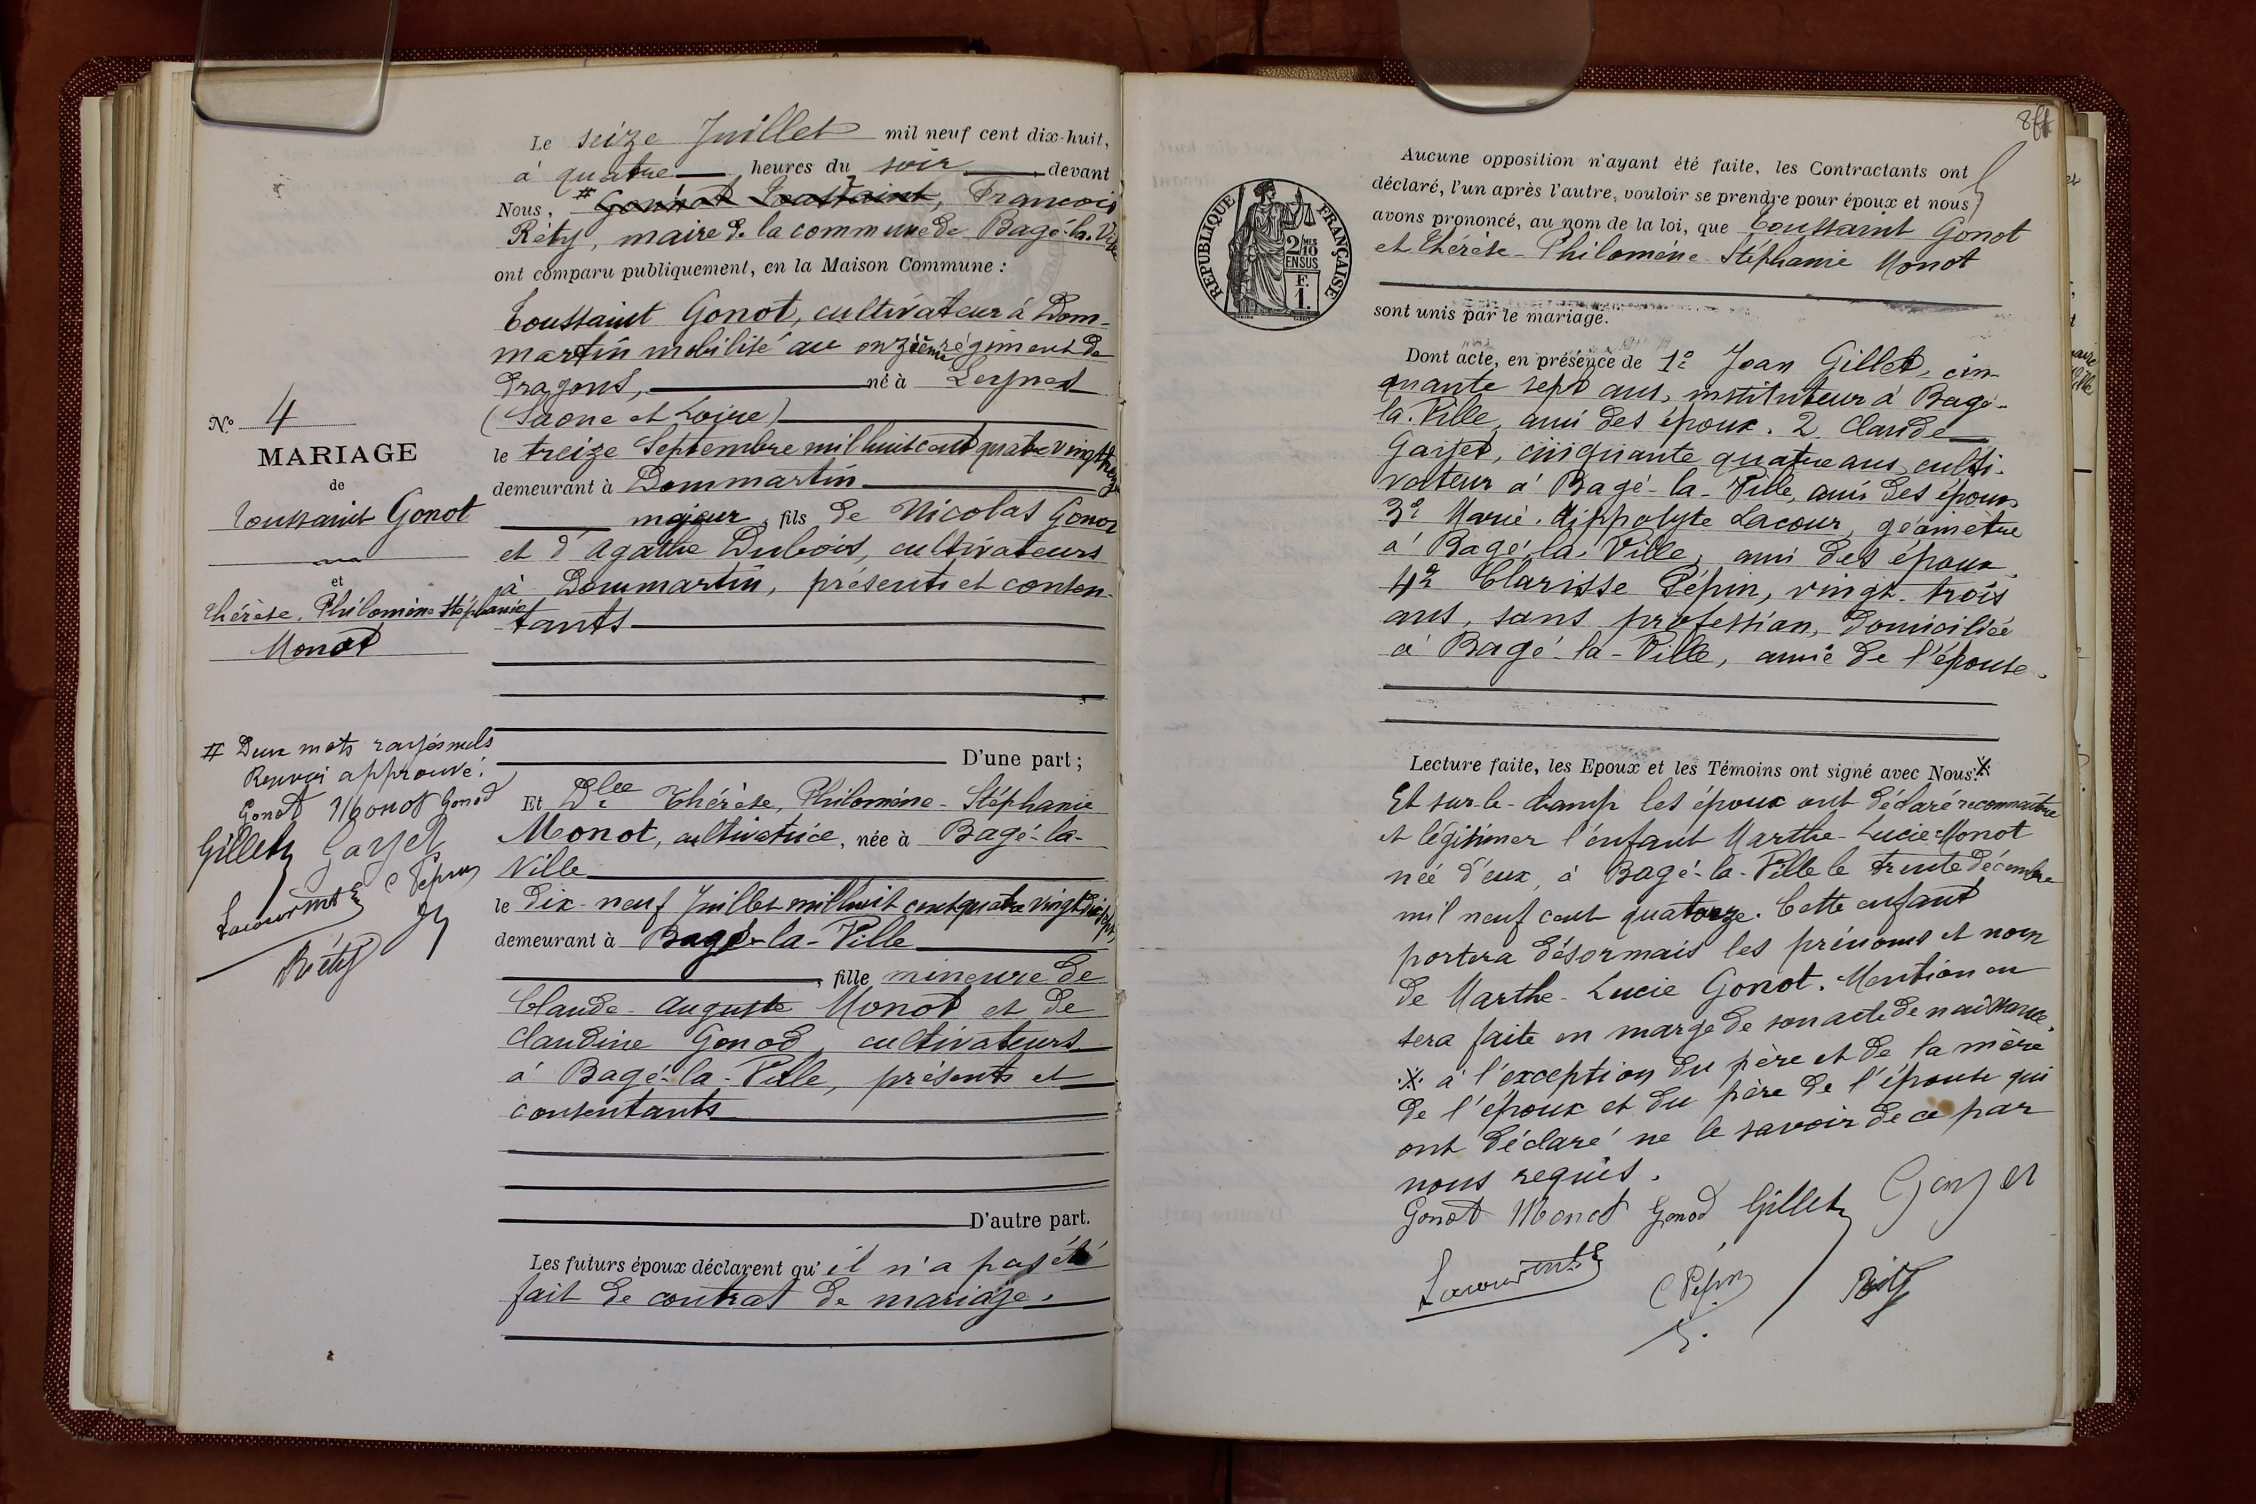 Le seize Juillet mil neuf cent dix-huit,
à quatre heures du soir, devant
Nous, # Gonnod Toussaint, François
Réty, maire de la commune de Bagé-la-Ville
ont comparu publiquement, en la Maison Commune :
Toussaint Gonot, cultivateur à Dom-
martin mobilisé au onzième régiment de
Dragons, né à Leynes
(Saone et Loire)
le treize Septembre mil huit cent quatre vingt
demeurant à Dommartin
majeur, fils de Nicolas Gonot
et d'Agathe Dubois, cultivateurs
à Dommartin, présents et consen-
tants
D'une part ;
Et Dlle Thérèse, Philomène-Stéphanie
Monot, cultivatrice, née à Bagé-la-
Ville
le dix-neuf Juillet mil huit cent quatre vingt dix sept,
demeurant à Bagé-la-Ville
, fille mineure de
Claude-Auguste Monot et de
Claudine Gonod, cultivateurs
à Bagé-la-Ville, présents et
consentants
D'autre part.
Les futurs époux déclarent qu'il n'a pas été
fait de contrat de mariage.
N.º 4
MARIAGE
de
Toussaint Gonot
et
Thérèse, Philomène Stéphanie
Monot
# Deux mots rayés nuls
Renvoi approuvé.
Gonot Monot Gonod
Gillet Gayet
Lacour C Pépin
Réty
Aucune opposition n'ayant été faite, les Contractants ont
déclaré, l'un après l'autre, vouloir se prendre pour époux et nous
avons prononcé, au nom de la loi, que Toussaint Gonot
et Thérèse-Philomène Stéphanie Monot
sont unis par le mariage.
RÉPUBLIQUE FRANÇAISE
2/10
EN SUS
F.
1.
Dont acte, en présence de 1º Jean Gillet, cin-
quante sept ans, instituteur à Bagé-
la-Ville, ami des époux. 2 Claude
Gayet, cinquante quatre ans, culti-
vateur à Bagé-la-Ville, ami des époux
3º Marie-Hippolyte Lacour, géomètre
à Bagé-la-Ville, ami des époux.
4º Clarisse Pépin, vingt-trois
ans, sans profession, domiciliée
à Bagé-la-Ville, amie de l'épouse.
Lecture faite, les Epoux et les Témoins ont signé avec Nous.
Et sur-le-champ les époux ont déclaré reconnaître
et légitimer l'enfant Marthe-Lucie Monot
née d'eux, à Bagé-la-Ville le trente décembre
mil neuf cent quatorze. Cette enfant
portera désormais les prénoms et nom
de Marthe-Lucie Gonot. Mention en
sera faite en marge de son acte de naissance.
à l'exception du père et de la mère
de l'époux et du père de l'épouse qui
ont déclaré ne le savoir de ce par
nous requis.
Gonot Monot Gonod Gillet Gayet
Lacour C Pépin Réty